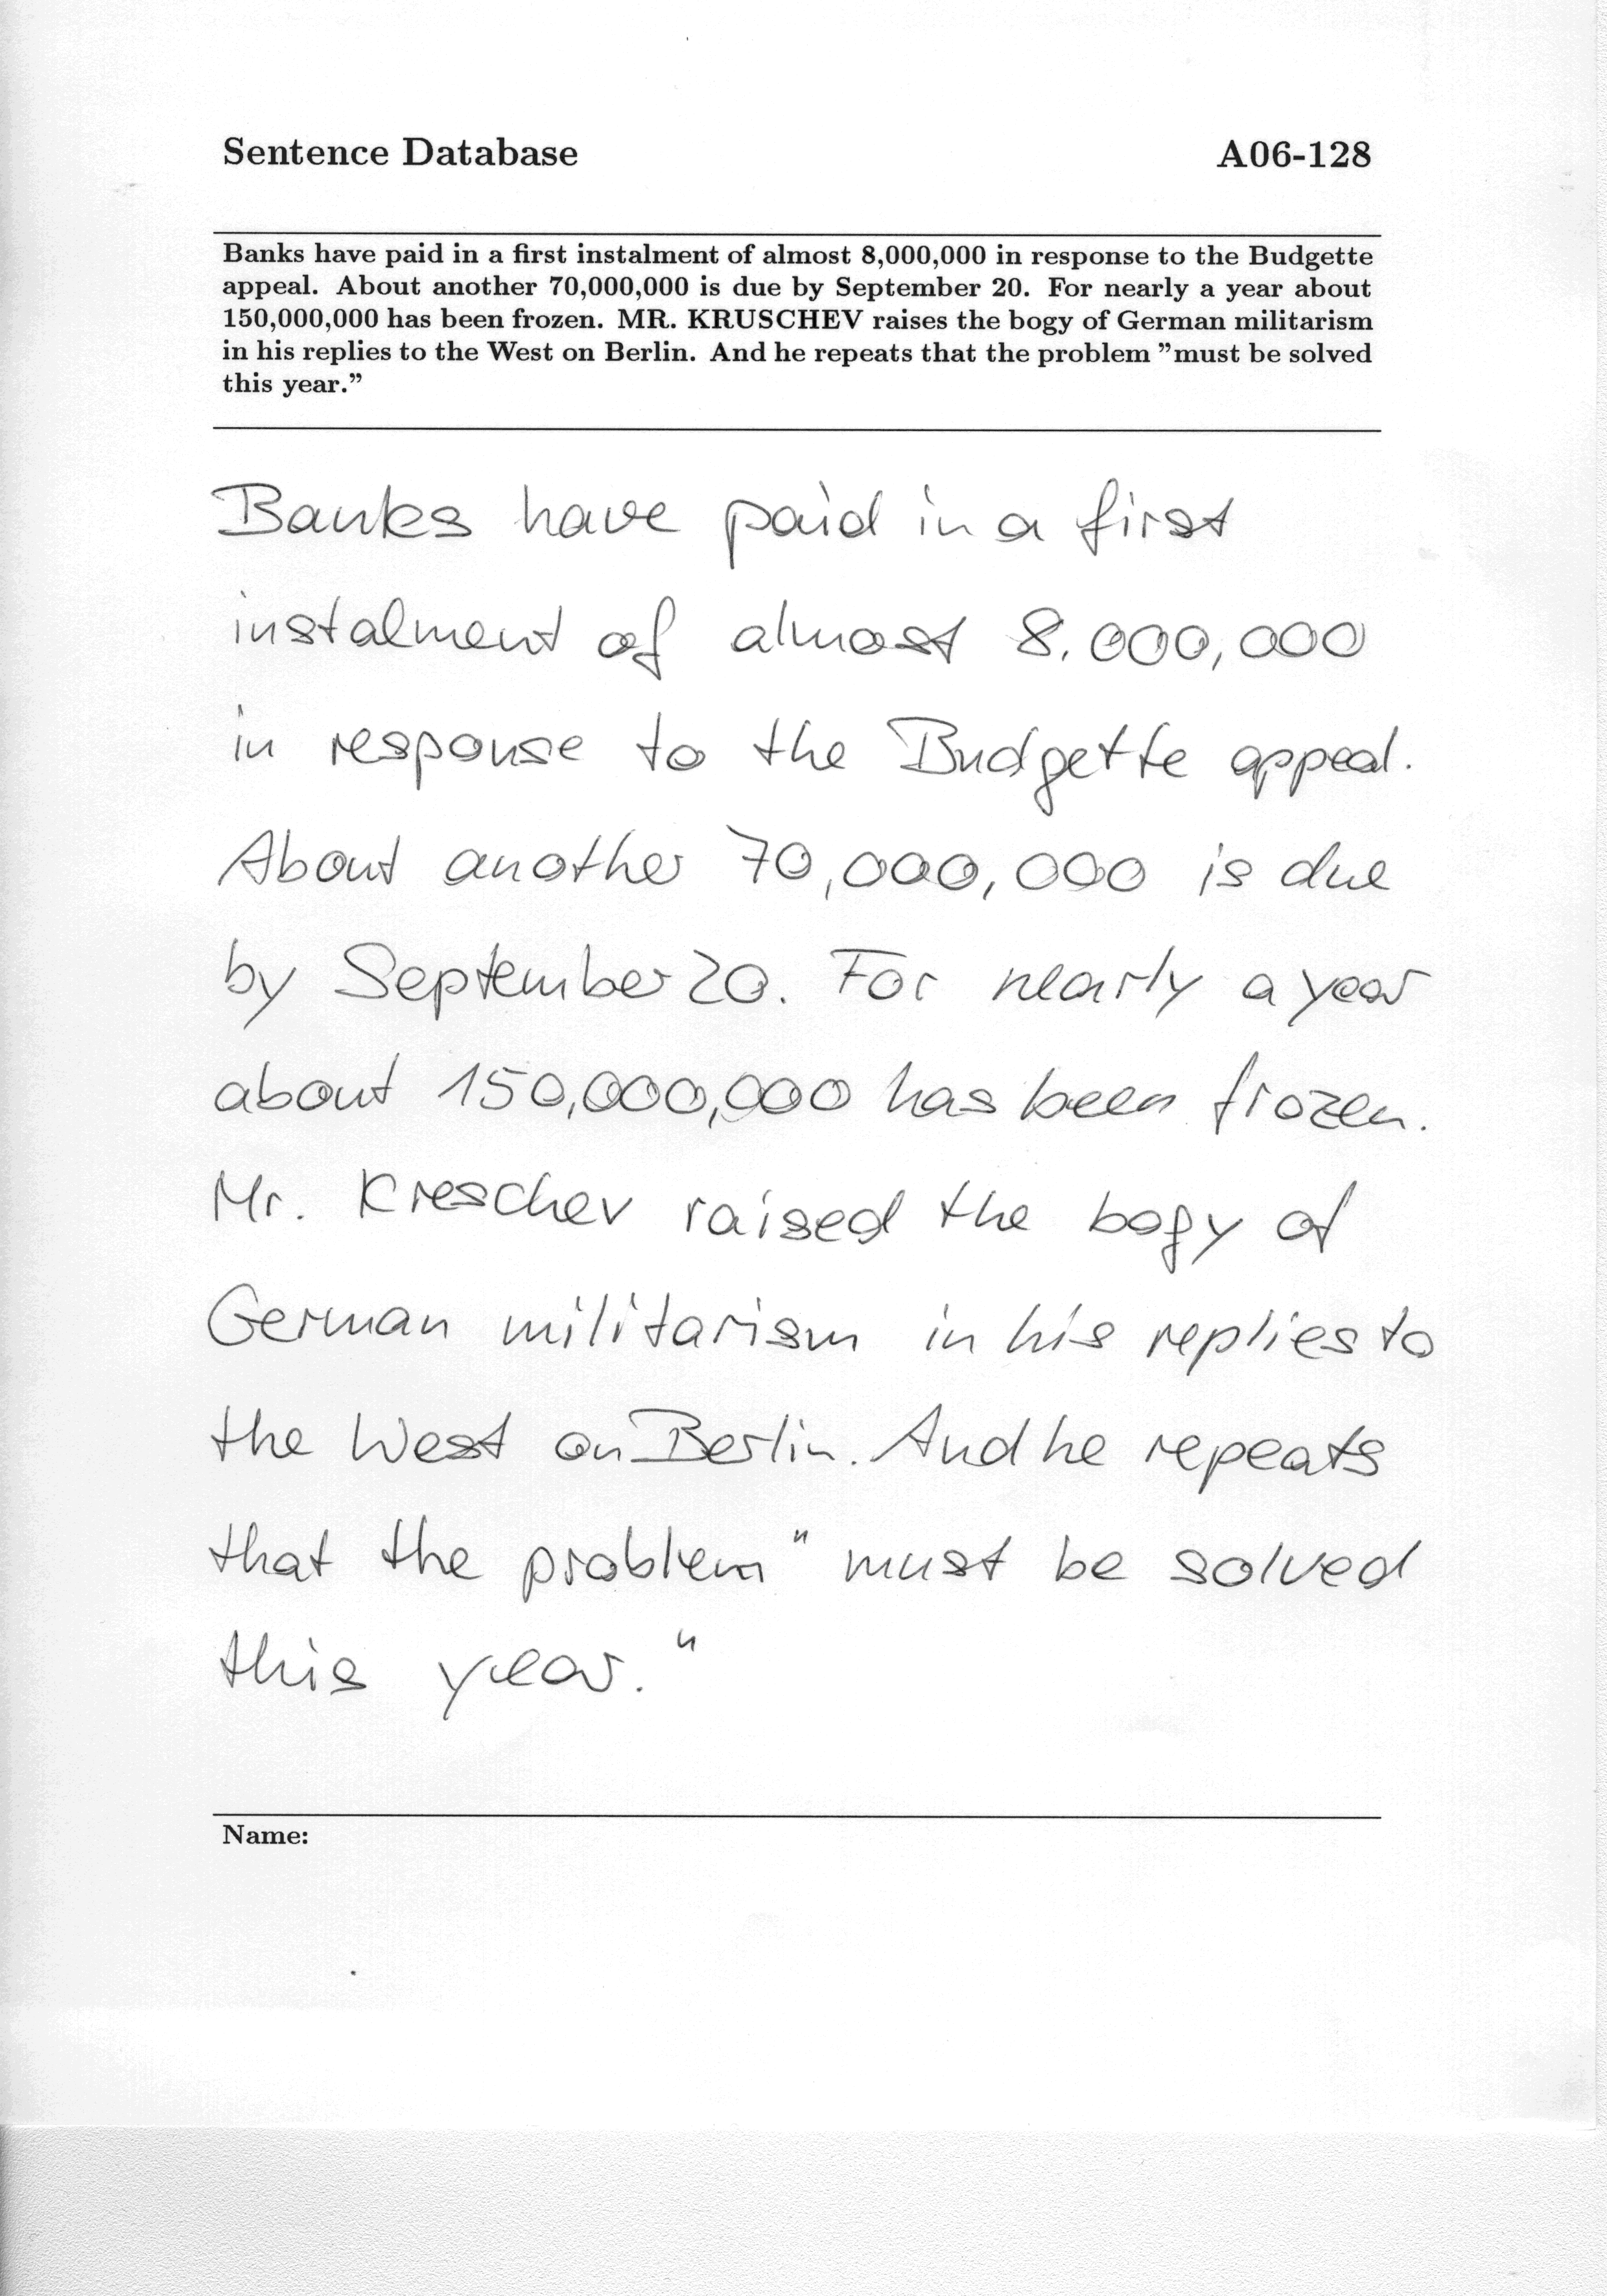 Sentence Database A06-128
Banks have paid in a first instalment of almost 8,000,000 in response to the Budgette
appeal. About another 70,000,000 is due by September 20. For nearly a year about
150,000,000 has been frozen. MR. KRUSCHEV raises the bogy of German militarism
in his replies to the West on Berlin. And he repeats that the problem ”must be solved
this year.”
Banks have paid in a first
instalment of almost 8.000,000
in response to the Budgette appeal.
About another 70,000,000 is due
by September 20. For nearly a year
about 150,000,000 has been frozen.
Mr. Kreschev raised the bogy of
German militarism in his replies to
the West on Berlin. And he repeats
that the problem " must be solved
this year."
Name: